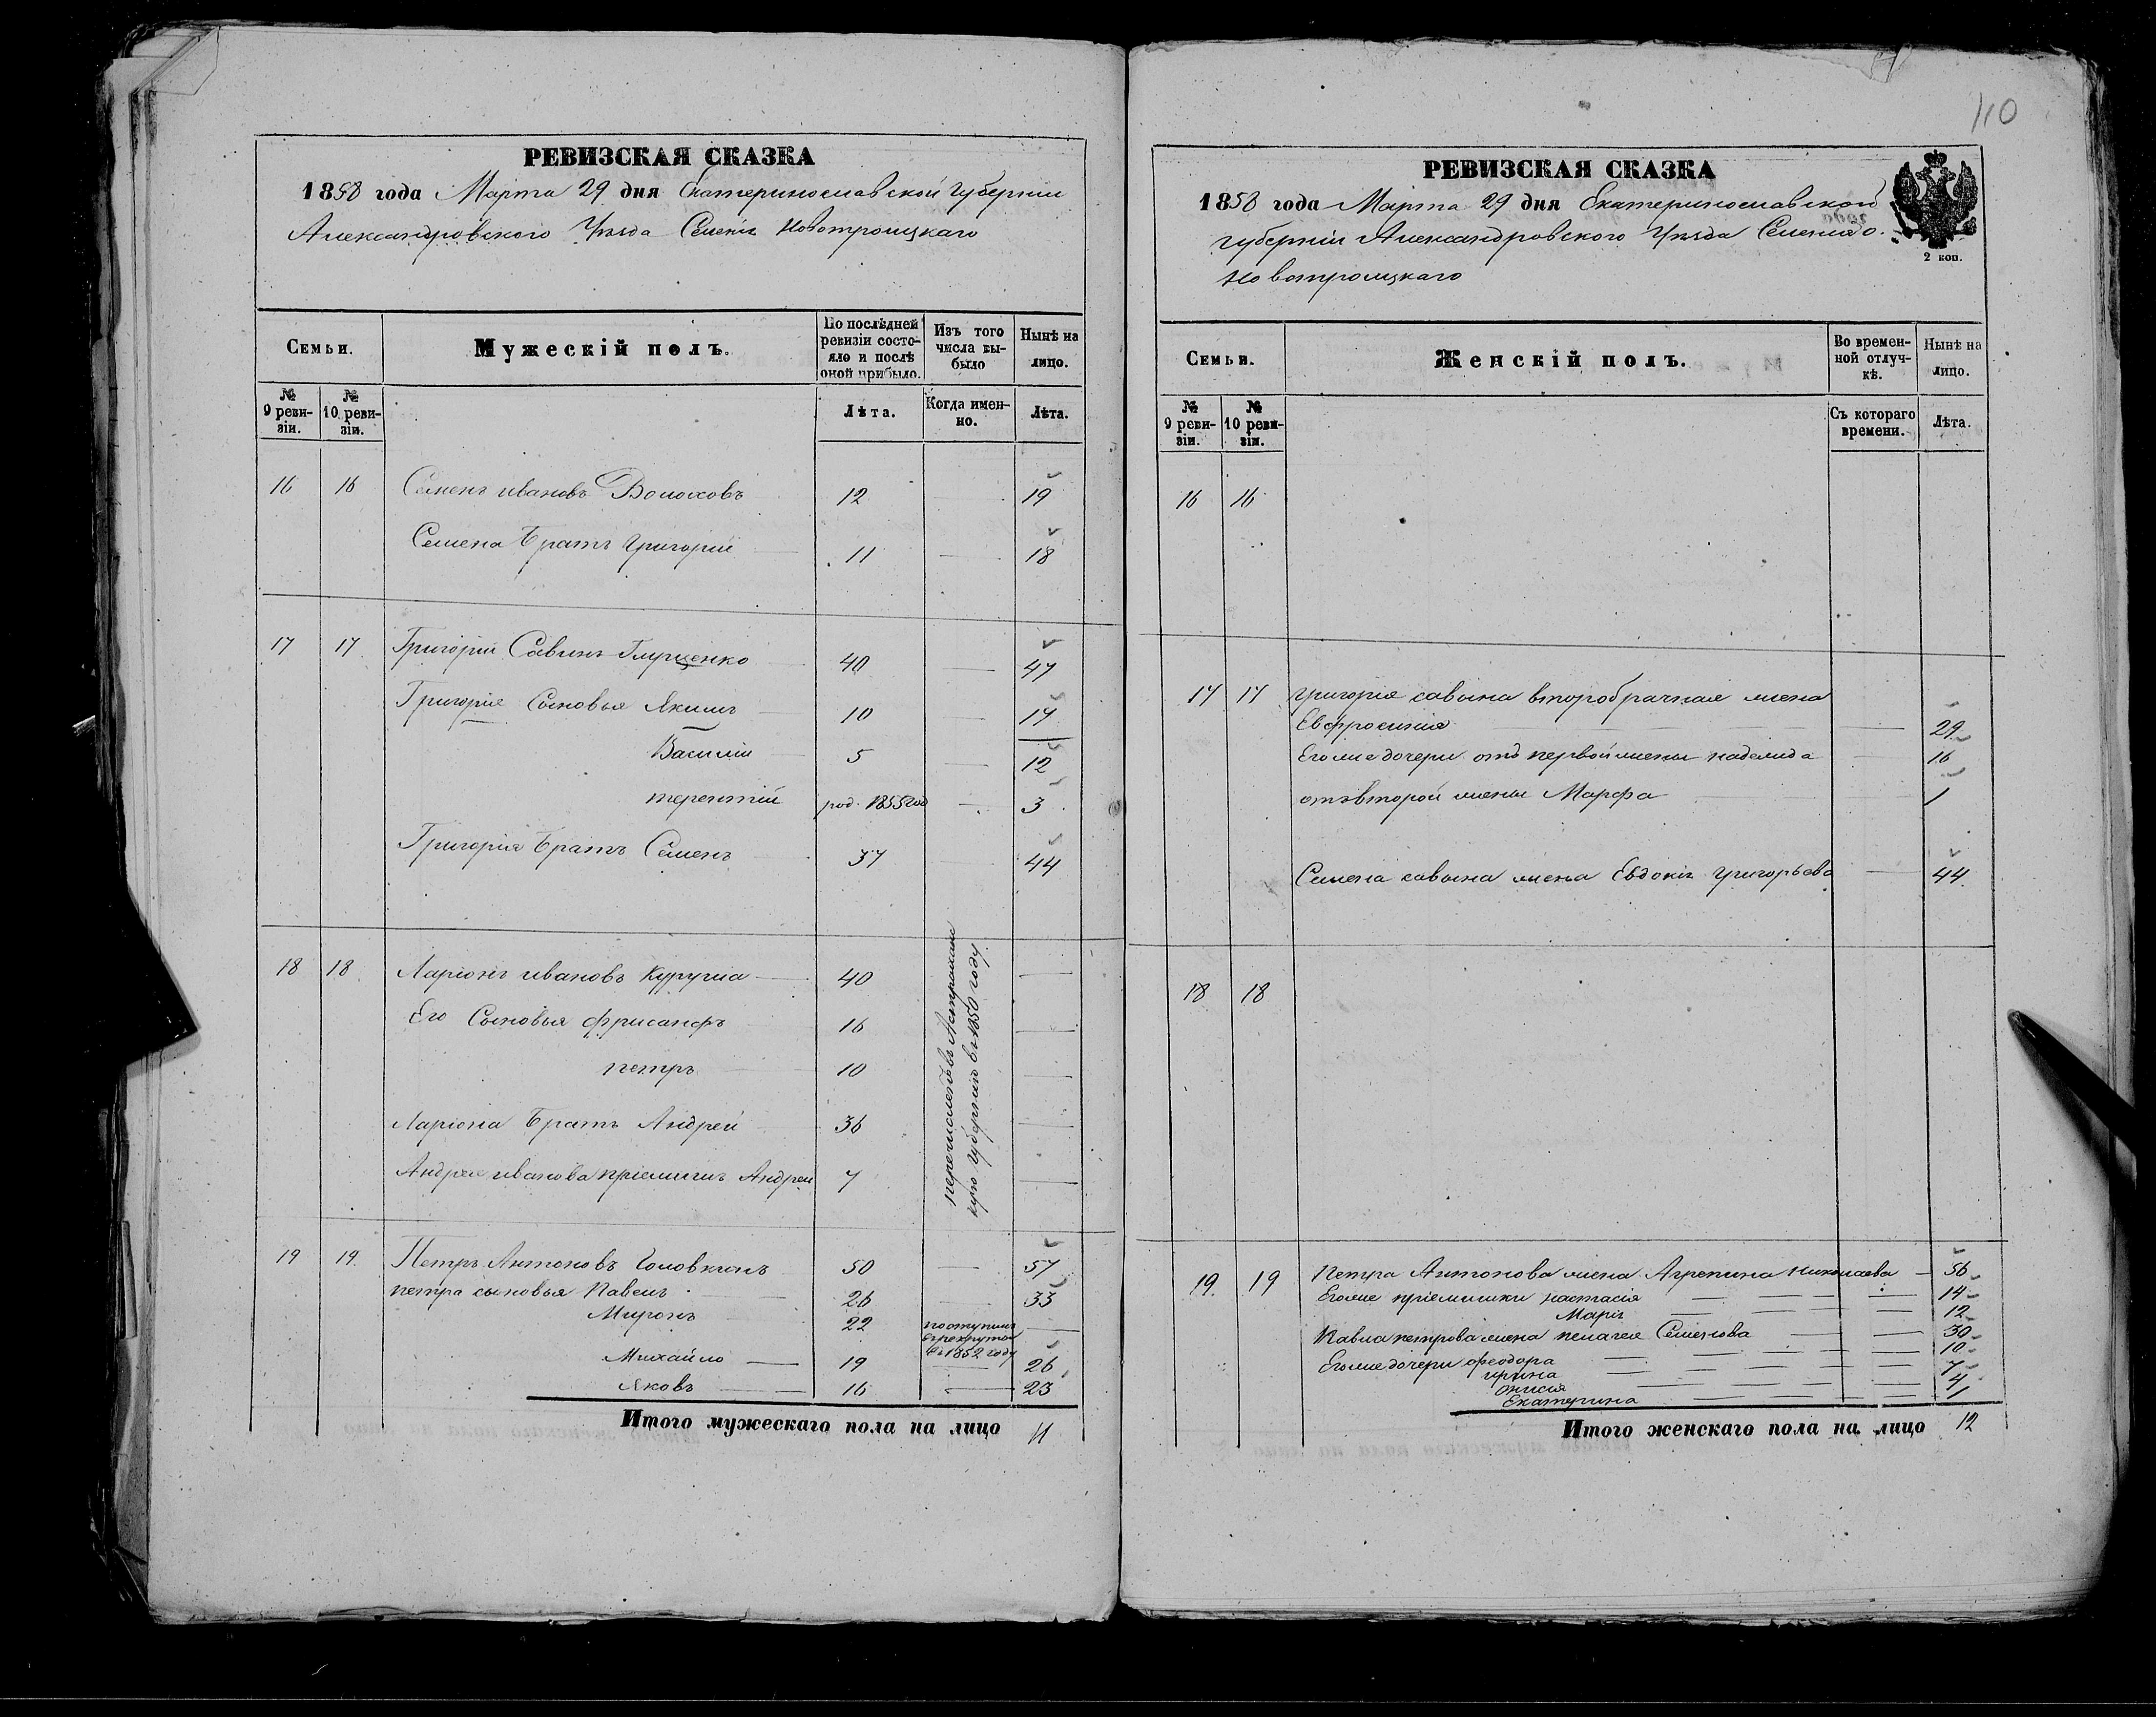 110
РЕВИЗСКАЯ СКАЗКА
1858 года Марта 29 дня Екатеринославской губерніи
Александровского Уѣзда Селенія Новотроицкаго
Семьи.
Мужескій полъ.
По послѣдней ревизіи состояло и послѣ оной прибыло.
Изъ того числа выбыло
Нынѣ на лицо.
№ 9 ревизіи.
№ 10 ревизіи.
Лѣта.
Когда именно.
Лѣта.
16 16 Семенъ ивановъ Волоховъ 12 19
Семена Братъ Григорій 11 18
17 17 Григорій Савинъ Глущенко 40 47
Григорія Сыновья Якимъ 10 17
Василій 5 12
терентій род. 1855 год 3
Григорія Братъ Семенъ 37 44
18 18 Ларіонъ ивановъ 40
Его Сыновья фрисанфъ 16
петръ 10
Ларіона Братъ Андрей 36
Андрея иванова пріемышъ Андрей 7
перечисленъ въ Астрахан
скую губернію въ 1850 году
19 19 Петръ Антоновъ Головкинъ 50 57
петра сыновья Павелъ 26 33
Миронъ 22 поступилъ
въ рекруты
въ 1852 году
Михайло 19 26
Яковъ 16 23
Итого мужескаго пола на лицо 11
РЕВИЗСКАЯ СКАЗКА
1858 года Марта 29 дня Екатеринославской
губерніи Александровского Уѣзда Селенія
Новотроицкаго
2 коп.
Семьи.
Женскій полъ.
Во временной отлучкѣ.
Нынѣ на лицо.
№ 9 ревизіи.
№ 10 ревизіи.
Съ котораго времени.
Лѣта.
16 16
17 17 Григорія савина второбрачная жена
Евфросинія 29
Егоже дочери отъ первой жены 16
отъ второй жены Марфа 1
Семена савина жена Евдокія Григорьева 44
18 18
19 19 Петра Антонова жена Агрепина Николаева 56
Егоже пріемышки настасія 14
Марія 12
Павла петрова жена пелагея Семенова 30
Егоже дочери феодора 10
ирина 7
4
Екатерина 1
Итого женскаго пола на лицо 12